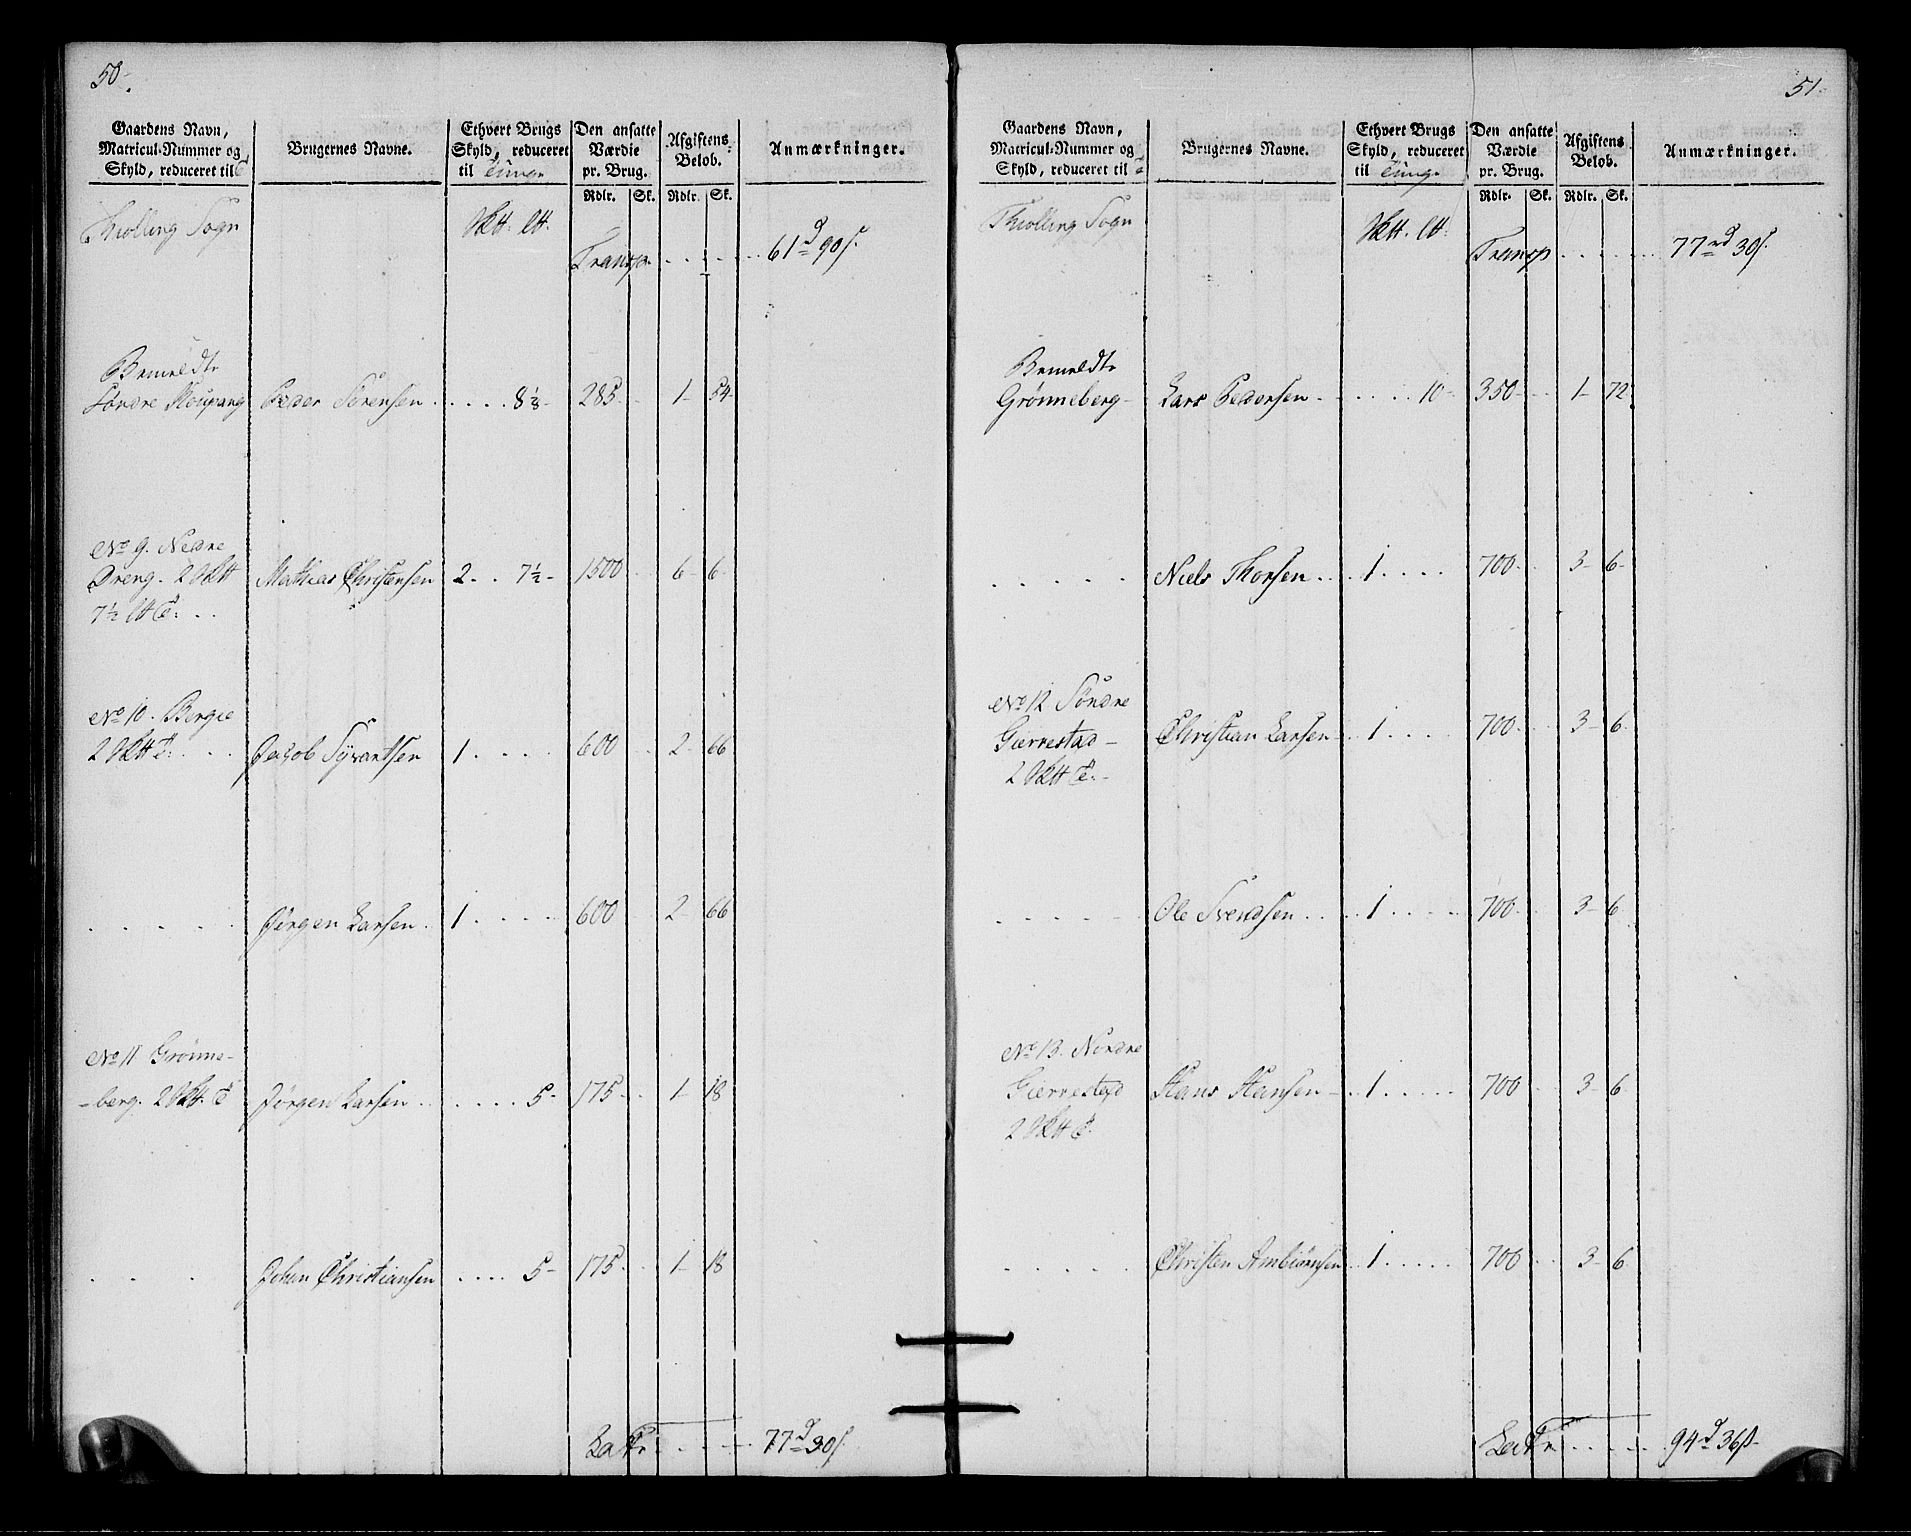 50.
Gaardens Navn, Matricul-Nummer og Skyld, reduceret til T
Brugernes Navne.
Ethvert Brugs Skyld, reduceret til Tunge
Den ansatte Værdie pr. Brug.
Afgiftens Beløb.
Anmærkninger.
Rdlr. Sk. Rdlr. Sk.
Thiølling Sogn
Sktt. Ltt.
Transp. . . . . . 61 rd 90 s.
Bemeldte
Søndre Koupang Peder Sørensen . . . . . 8 1/3 - 285 - 1 - 54 -
No 9. Nedre
Dreng. 2 Sktt Mathias Christensen 2 . . 7 1/2 - 1500 6 - 6 -
7 1/2 Ltt T. . .
No 10. Bergie
2 Sktt T. . . Jacob Syvertsen 1 . . . . 600 2 - 66
. . . . . Jørgen Larsen . 1 . . . . 600 2 - 66
No 11 Grønne-
-berg. 2 Skt. T Jørgen Larsen . . . . . . 5 - 175 - 1 - 18
. . . . Johan Christiansen . . . . 5 - 175 1 - 18
Latr . . . . 77 rd 30 s.
51.
Gaardens Navn, Matricul-Nummer og Skyld, reduceret til T
Brugernes Navne.
Ethvert Brugs Skyld, reduceret til Tunge
Den ansatte Værdie pr. Brug.
Afgiftens Beløb.
Anmærkninger.
Rdlr. Sk. Rdlr. Sk.
Thiølling Sogn
Sktt. Ltt.
Transp . . . . . . 77 rd 30 s.
Bemeldte
Grønneberg - Lars Pedersen . . . . . . 10 - 350 - 1 - 72
. . . . . Niels Thorsen . . . 1 . . . . 700 - 3 - 6 -
No 12 Søndre
Gierrestad - Christian Larsen - . . 1 . . . . 700 3 - 6
2 Sktt T. -
. . . . . Ole Svendsen . . . . 1 . . . . 700 3 - 6
No 13. Nordre
Gierrestad Hans Hansen - . . 1 . . . . . 700 3 - 6
2 Sktt T.
. . . . . Christen Ambiørnsen . . 1 . . . . . 700 3 - 6
Latr . . . . . . 94 rd 36 s -